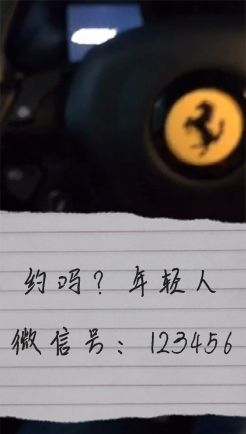 约吗？年轻人
微信号：123456